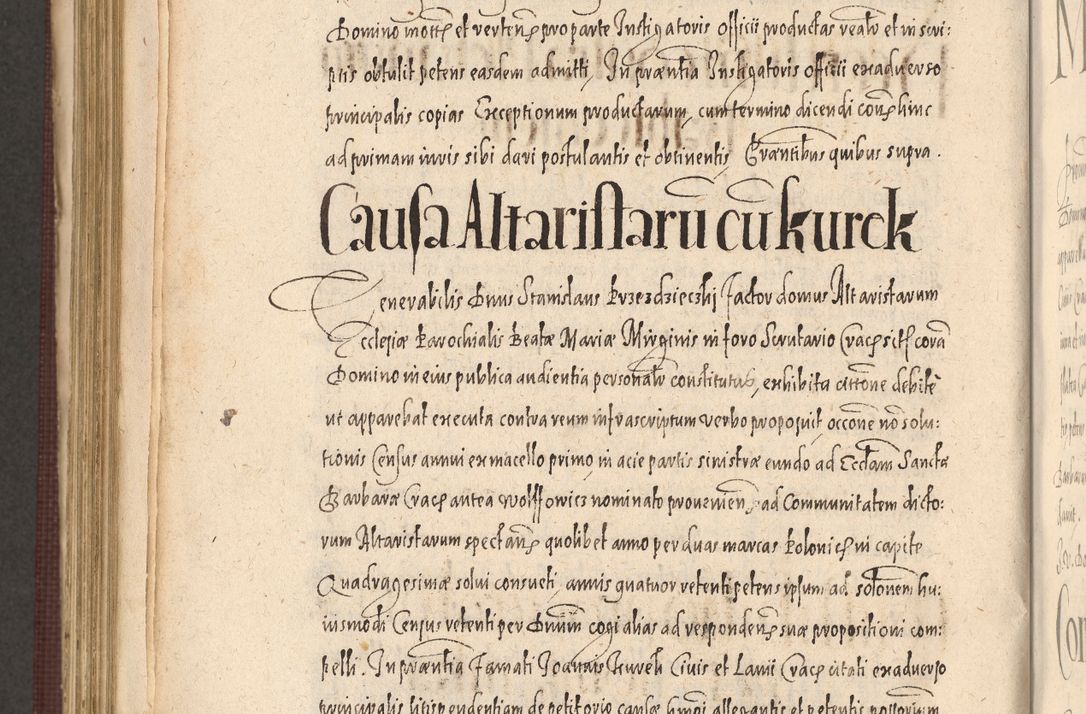 Domino mottę et vertenę pro parte Instigatoris Officii productas realr et in scri:
ptis obtulit petens easdem admitti, In præntia Instigatoris Officii exadverso
principalis copias Exceptionum productarum, cum termino dicendi conę hinc
ad primam iuris sibi dari postulantis et obtinentis Præntibus quibus supra.
Causa Altaristarū cū kurek
Venerabilis Dnus Stanislaus Przezdzieczkij factor domus Altaristarum
Ecclesiæ Parochialis Beatæ Mariæ Virginis in foro Scrutario Cracę sitę corā
Domino in eius publica audientia personalr constitutus, exhibita cittōne debitè
ut apparebat executa contra reum infrascriptum verbo proposuit occōne nō solu:
tionis Census annui ex macello primo in acie partis sinistræ eundo ad Eccłam Sanctæ
Barbaræ Cracę antea Wolffowicz nominato provenienę ad Communitatem dicto:
rum Altaristarum spectanę quolibet anno per duas marcas Polonicę in capite
Quadragesimæ solui consueti, annis quatuor retenti petens ipsum ad solōnem hu:
iusmodi Census retenti per Dnum cogi alias ad respondenę suæ propositioni com:
pelli. In præntia famati Joannis Kurek Civis et Lanii Cracę citati exadverso
principalis litispendentiam de petitorio causæ hmōi allegantis et petentis possorium